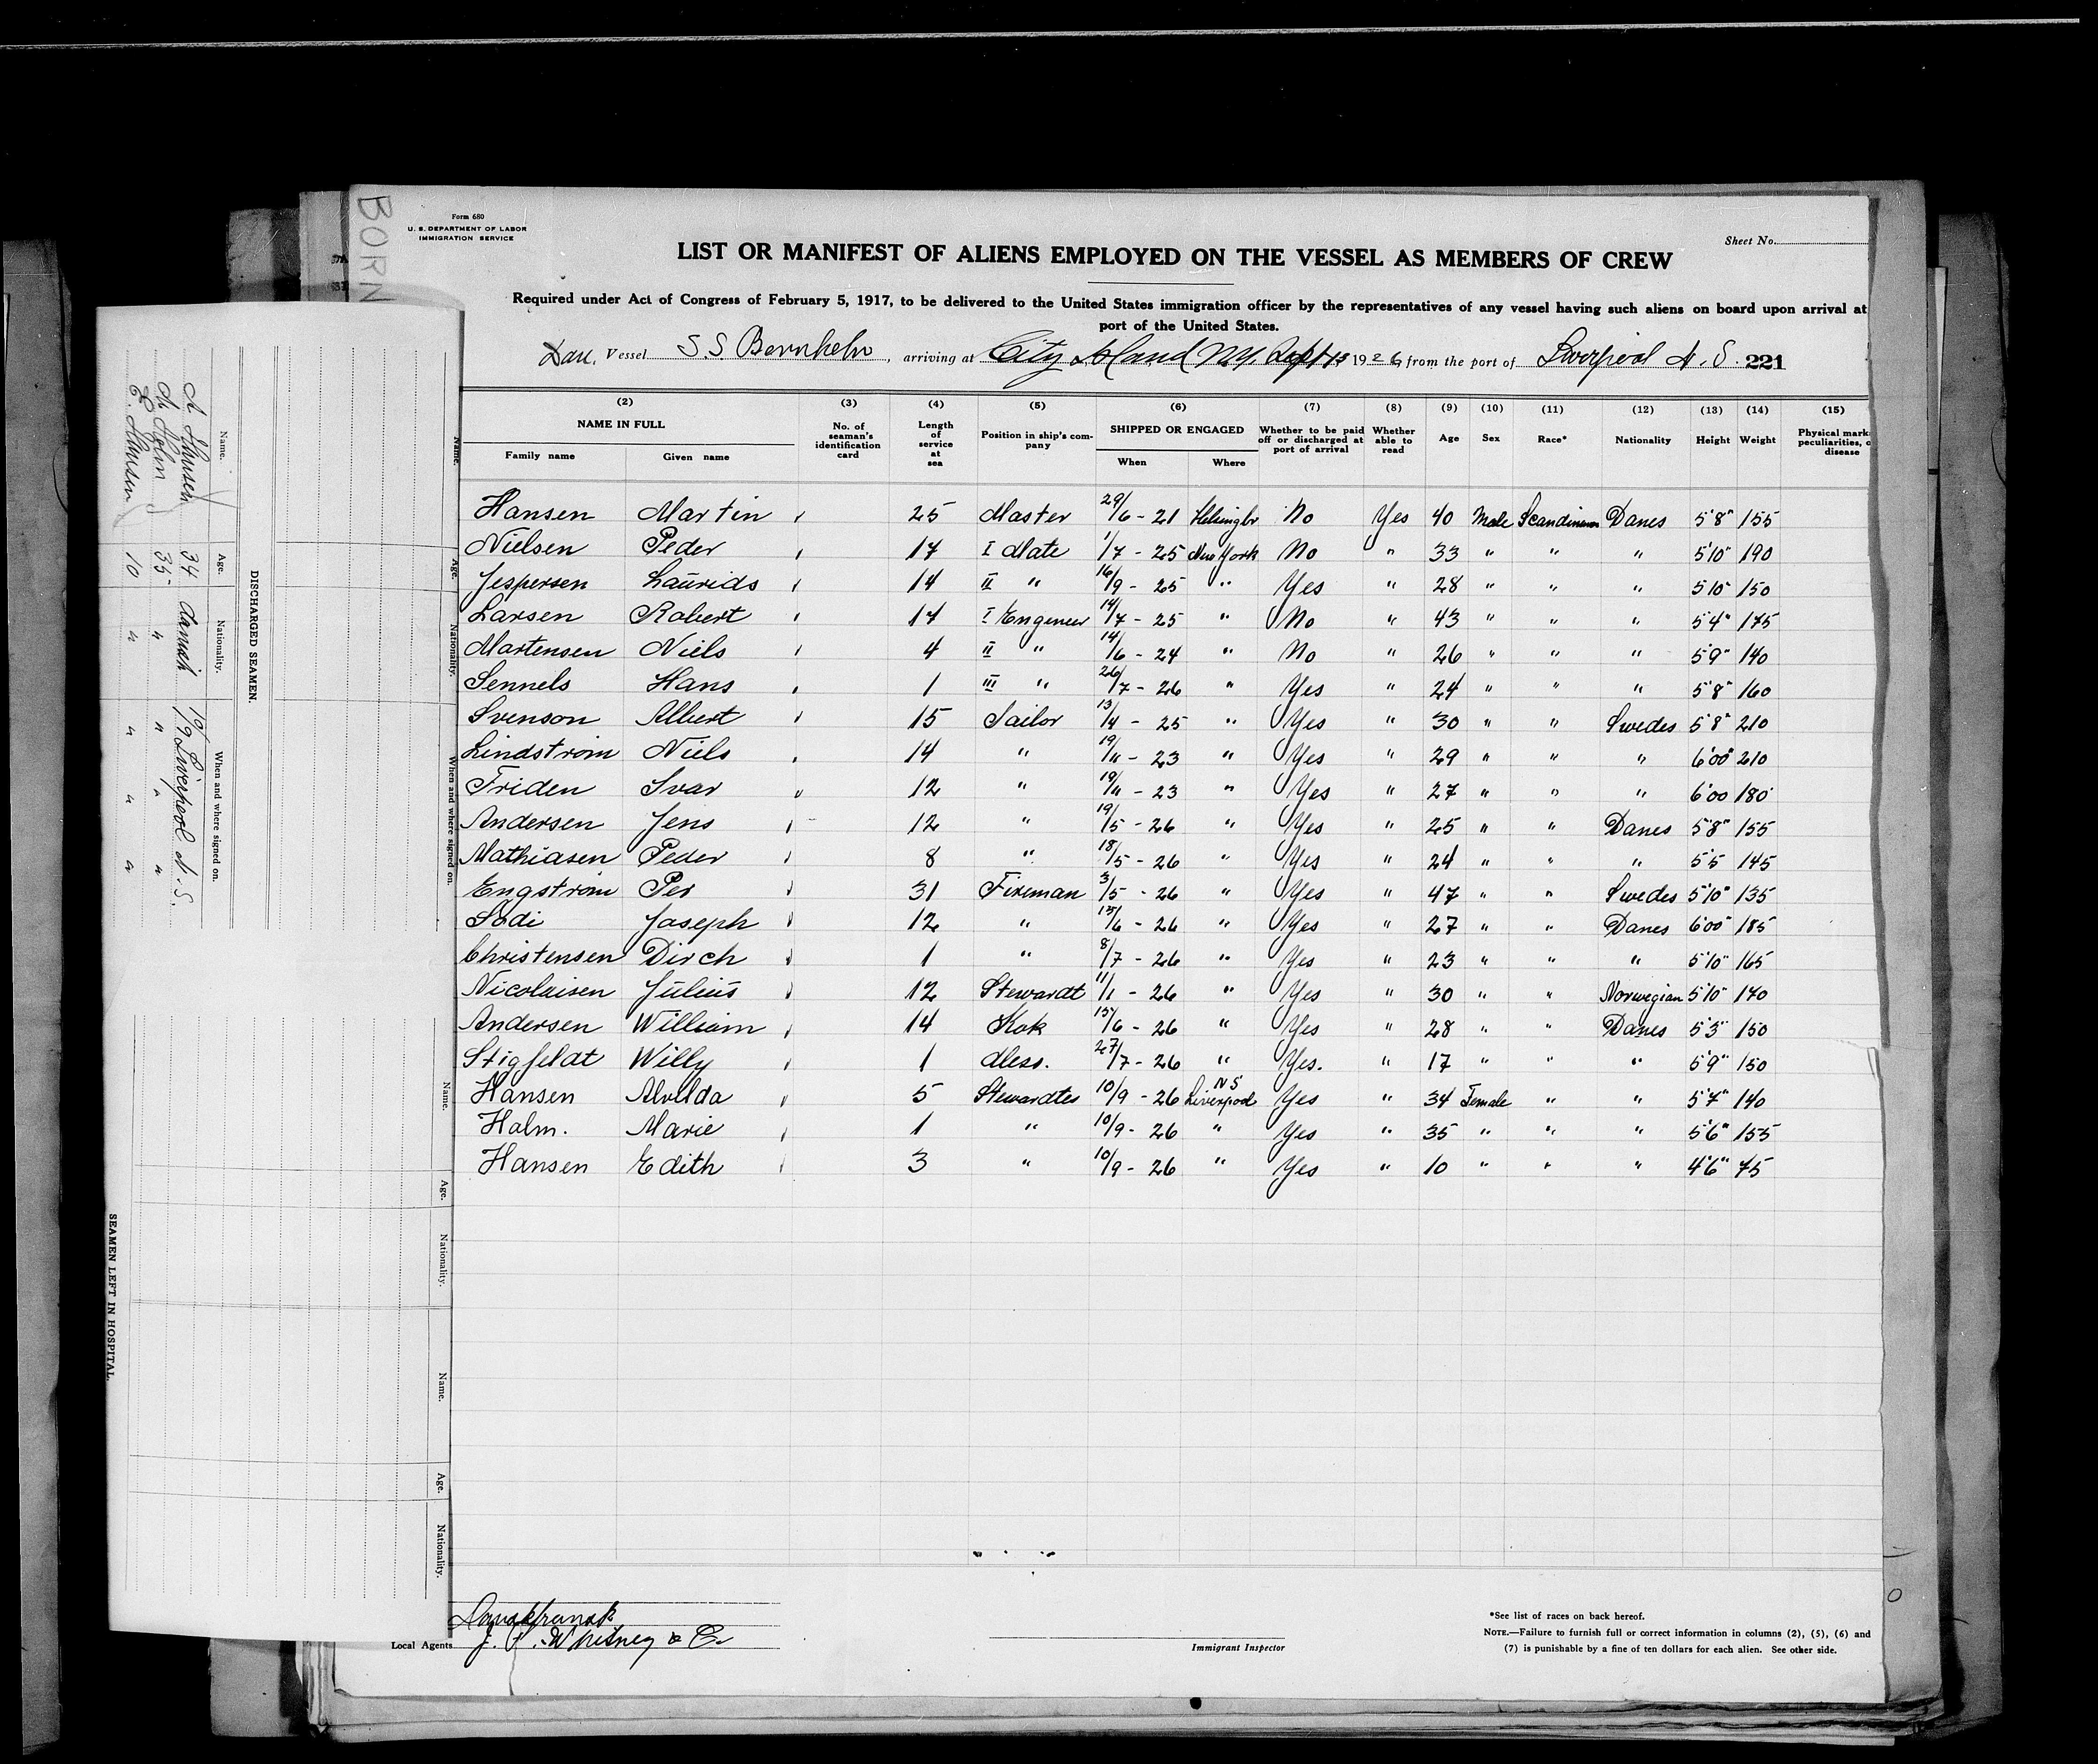 BORN
Form 680
U. S. DEPARTMENT OF LABOR
IMMIGRATION SERVICE
Sheet No.
LIST OR MANIFEST OF ALIENS EMPLOYED ON THE VESSEL AS MEMBERS OF CREW
Required under Act of Congress of February 5, 1917, to be delivered to the United States immigration officer by the representatives of any vessel having such aliens on board upon arrival at
port of the United States.
Dan. Vessel S S. Bornholm, arriving at City Island N.Y. Sept 13 1926, from the port of Liverpool N. S. 221
(2) (3) (4) (5) (6) (7) (8) (9) (10) (11) (12) (13) (14) (15)
NAME IN FULL
Family name Given name
No. of seaman's identification card
Length of service at sea
Position in ship's company
SHIPPED OR ENGAGED
When Where
Whether to be paid off or discharged at port of arrival
Whether able to read
Age Sex Race* Nationality Height Weight
Physical mark peculiarities, o disease
Hansen Martin 25 Master 29/6 - 21 No Yes 40 Male Danes 5'8" 155
Nielsen Peder 17 I Mate 1/7 - 25 New York No " 33 " " " 5'10" 190
Jespersen Laurids 14 II " 16/9 - 25 " Yes " 28 " " " 5'10" 150
Larsen Robert 17 I Engeneer 14/7 - 25 " No " 43 " " " 5'4" 175
Martensen Niels 4 II " 14/6 - 24 " No " 26 " " " 5'9" 140
Sennels Hans 1 III " 26/7 - 26 " Yes " 24 " " " 5'8" 160
Svenson Albert 15 Sailor 13/4 - 25 " Yes " 30 " " Swedes 5'8" 210
Lindström Niels 14 " 19/11 - 23 " Yes " 29 " " " 6'00" 210
Friden Ivar 12 " 19/11 - 23 " Yes " 27 " " " 6'00 180
Andersen Jens 12 " 19/5 - 26 " Yes " 25 " " Danes 5'8" 155
Mathiasen Peder 8 " 18/5 - 26 " Yes " 24 " " " 5'5 145
Engström Per 31 Fireman 3/5 - 26 " Yes " 47 " " Swedes 5'10" 135
Sodi Joseph 12 " 15/6 - 26 " Yes " 27 " " Danes 6'00" 185
Christensen Dirch 1 " 8/7 - 26 " Yes " 23 " " " 5'10" 165
Nicolaisen Julius 12 Stewardt 11/1 - 26 " Yes " 30 " " Norwegian 5'10" 170
Andersen William 14 Kok 15/6 - 26 " Yes " 28 " " Danes 5'3" 150
Stigfeldt Willy 1 Mess. 27/7 - 26 " Yes. " 17 " " " 5'9" 150
Hansen Alvilda 5 Stewardtes 10/9 - 26 Liverpool NS Yes " 34 Female " " 5'7" 140
Holm. Marie 1 " 10/9 - 26 " Yes " 35 " " " 5'6" 155
Hansen Edith 3 " 10/9 - 26 " Yes " 10 " " " 4'6" 75
Local Agents J. F. Whitney & Co.
Immigrant Inspector
*See list of races on back hereof.
NOTE.—Failure to furnish full or correct information in columns (2), (5), (6) and
(7) is punishable by a fine of ten dollars for each alien. See other side.
DISCHARGED SEAMEN.
Name. Age. Nationality. When and where signed on.
A Hansen 34 danish 10/9 Liverpool N. S.
M Holm 35 " " " "
E. Hansen 10 " " " "
Name. Age. Nationality. When and where signed on.
SEAMEN LEFT IN HOSPITAL.
Name. Age. Nationality.
Name. Age. Nationality.